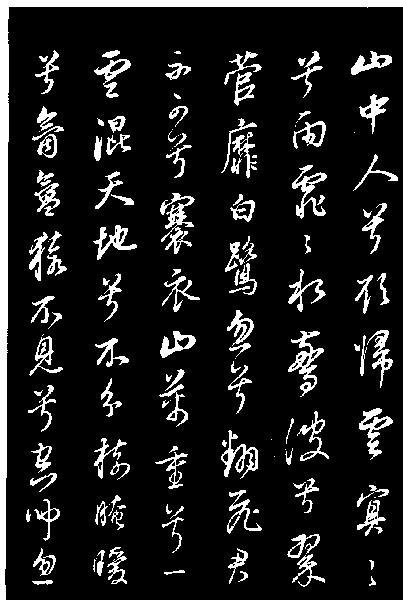 山中人兮欲歸雲冥〻
兮雨霏〻水驚波兮翠
菅靡白鷺忽兮翻飛君
不可兮褰衣山萬重兮一
雲混天地兮不分樹晻曖
兮氛氳猿不見兮空聞忽